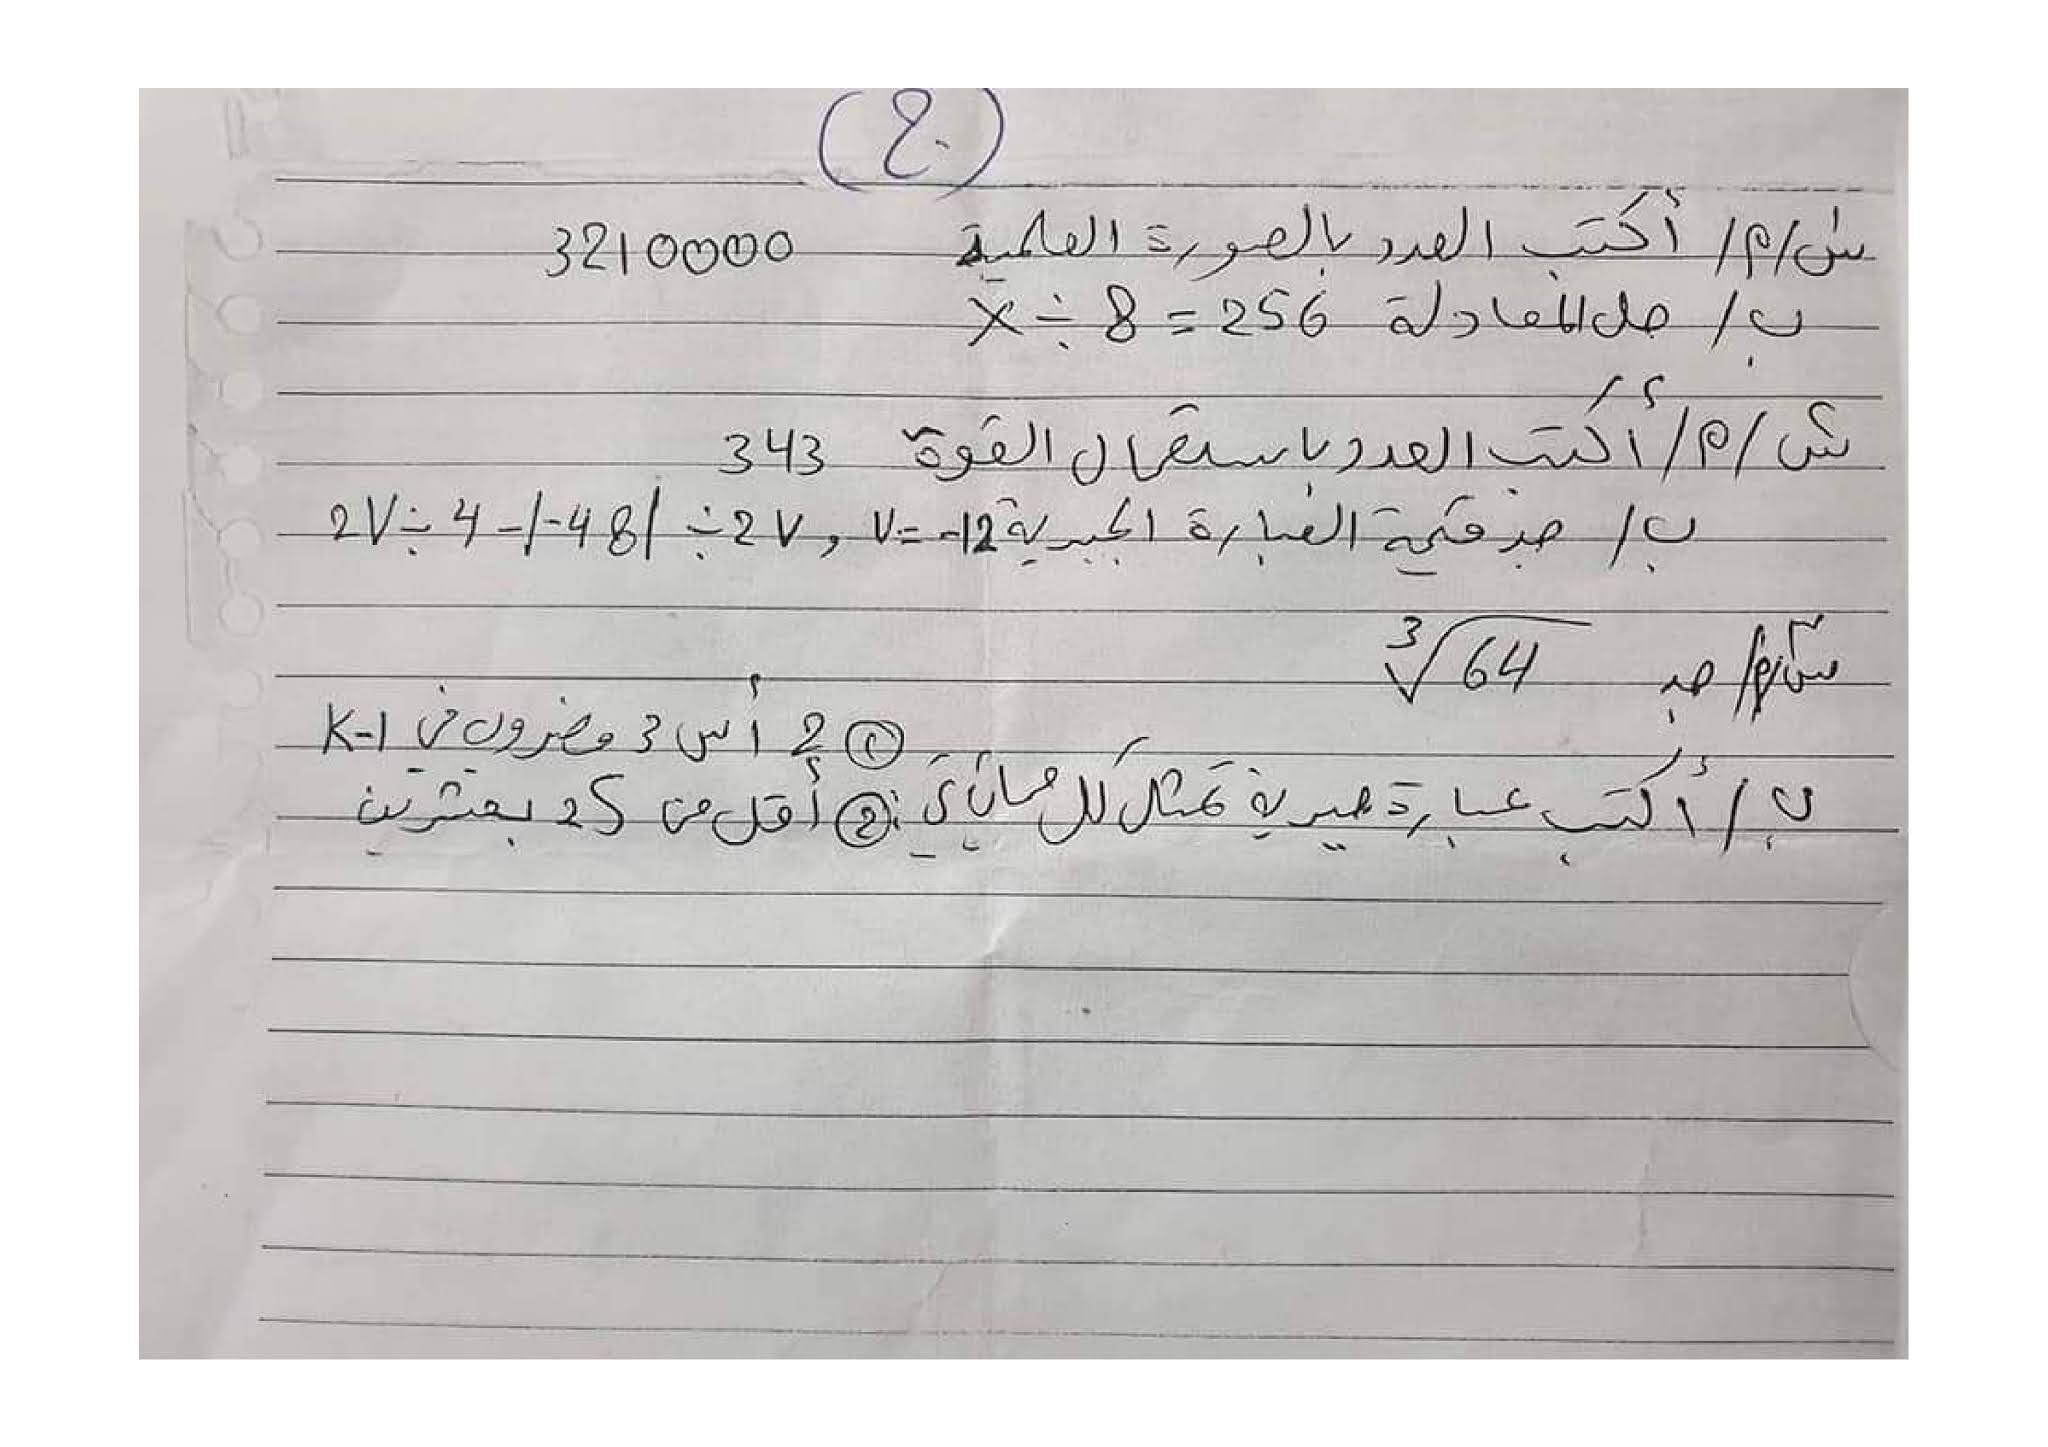 (ج)
س١/م/ أكتب العدد بالصورة العلمية 3210000
ب/ حل المعادلة x ÷ 8 = 256
س٢/م/ أكتب العدد باستعمال القوة 343
ب/ جد قيمة العبارة الجبرية 2V ÷ 4 - |-48| ÷ 2V , V = -12
س٣/م/ جد ∛64
ب/ أكتب عبارة جبرية تمثل كل مما يأتي: ① 2 أس 3 مضروب في K-1
② أقل من 25 بعشرين